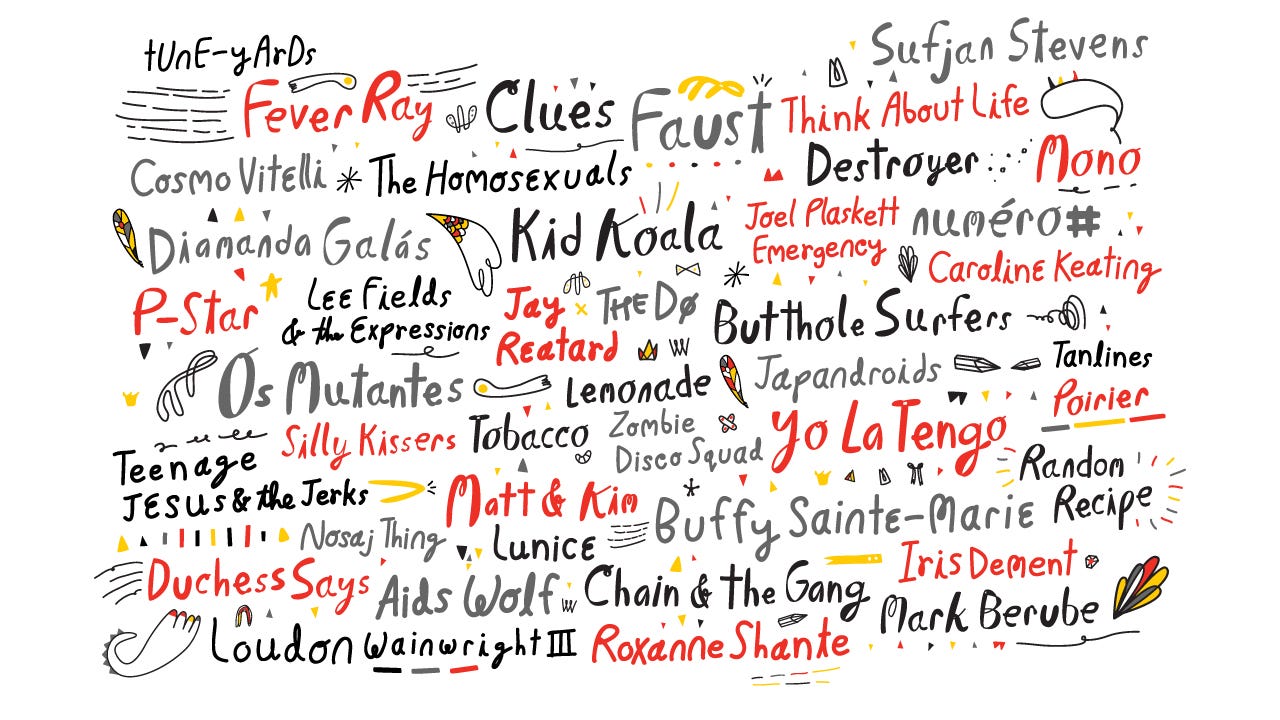 tUnE-yArDs
Sufjan Stevens
Fever Ray
Clues
Faust
Think About Life
Cosmo Vitelli
The Homosexuals
Destroyer
Mono
Diamanda Galás
Kid Koala
Joel Plaskett
Emergency
numéro#
Caroline Keating
P-Star
Lee Fields
& the Expressions
Jay
Reatard
The Dø
Butthole Surfers
Os Mutantes
Lemonade
Japandroids
Tanlines
Poirier
Teenage
Jesus & the Jerks
Silly Kissers
Tobacco
Zombie
Disco Squad
Yo La Tengo
Random
Recipe
Matt & Kim
Buffy Sainte-Marie
Nosaj Thing
Lunice
Duchess Says
Aids Wolf
Chain & the Gang
Iris Dement
Mark Berube
Loudon Wainwright III
Roxanne Shante